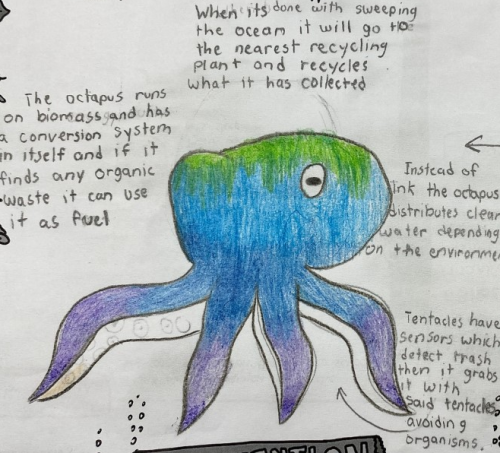 When its done with sweeping
the ocean it will go to
the nearest recycling
plant and recycles
what it has collected
The octapus runs
on biomass and has
a conversion system
in itself and if it
finds any organic
waste it can use
it as fuel
Instead of
ink the octapus
distributes clean
water depending
on the environme
Tentacles have
sensors which
detect trash
then it grabs
it with
said tentacles
avoiding
organisms.